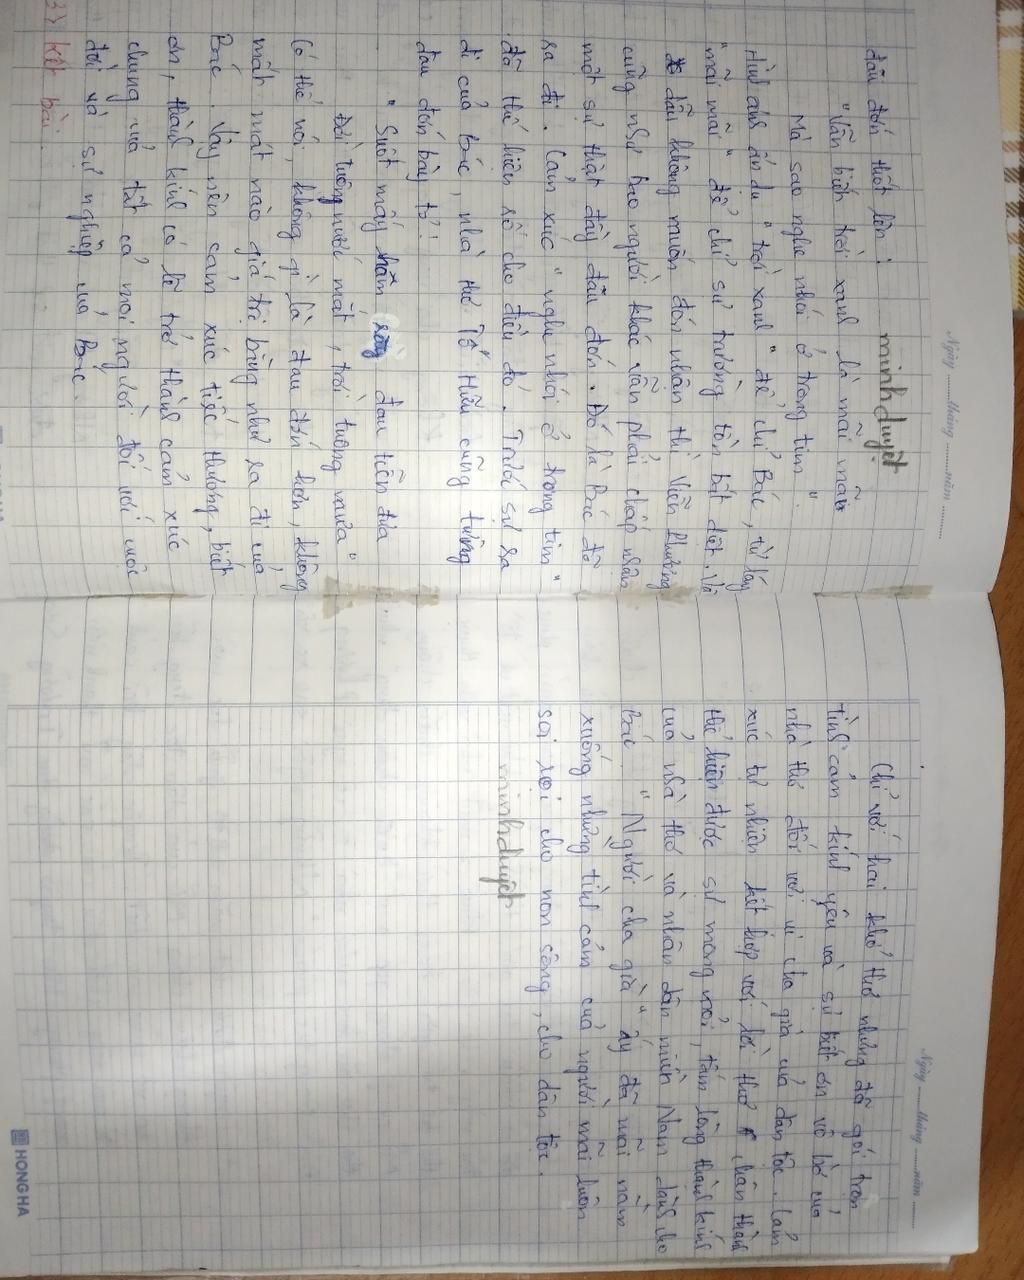 Ngày ........ tháng ........ năm ........
đau đớn thốt lên :
minhduyệt
" Vẫn biết trời xanh là mãi mãi
Mà sao nghe nhói ở trong tim "
Hình ảnh ẩn dụ " trời xanh " để chỉ Bác, từ láy
" mãi mãi " để chỉ sự trường tồn bất diệt. Và
dẫu không muốn đón nhận thì Viễn Phương
cũng như bao người khác vẫn phải chấp nhận
một sự thật đầy đau đớn. Đó là Bác đã
ra đi. Cảm xúc " nghe nhói ở trong tim "
đã thể hiện rõ cho điều đó. Trước sự ra
đi của Bác, nhà thơ Tố Hữu cũng từng
đau đớn bày tỏ :
" Suốt mấy hôm rày đau tiễn đưa
Đời tuông nước mắt, trời tuông mưa "
Có thể nói, không gì là đau đớn hơn, không
mất mát nào giá trị bằng như ra đi của
Bác. Vậy nên cảm xúc tiếc thương, biết
ơn, thành kính có lẽ trở thành cảm xúc
chung của tất cả mọi người đối với cuộc
đời và sự nghiệp của Bác.
3) Kết bài
Ngày ........ tháng ........ năm ........
Chỉ với hai khổ thơ nhưng đã gói trọn
tình cảm kính yêu và sự biết ơn vô bờ của
nhà thơ đối với vị cha già của dân tộc. Cảm
xúc tự nhiên kết hợp với lời thơ chân thành
thể hiện được sự mong mỏi, tấm lòng thành kính
của nhà thơ và nhân dân miền Nam dành cho
Bác. " Người cha già " ấy đã mãi nằm
xuống nhưng tình cảm của người mãi luôn
soi rọi cho non sông, cho dân tộc.
minhduyệt
HONG HA